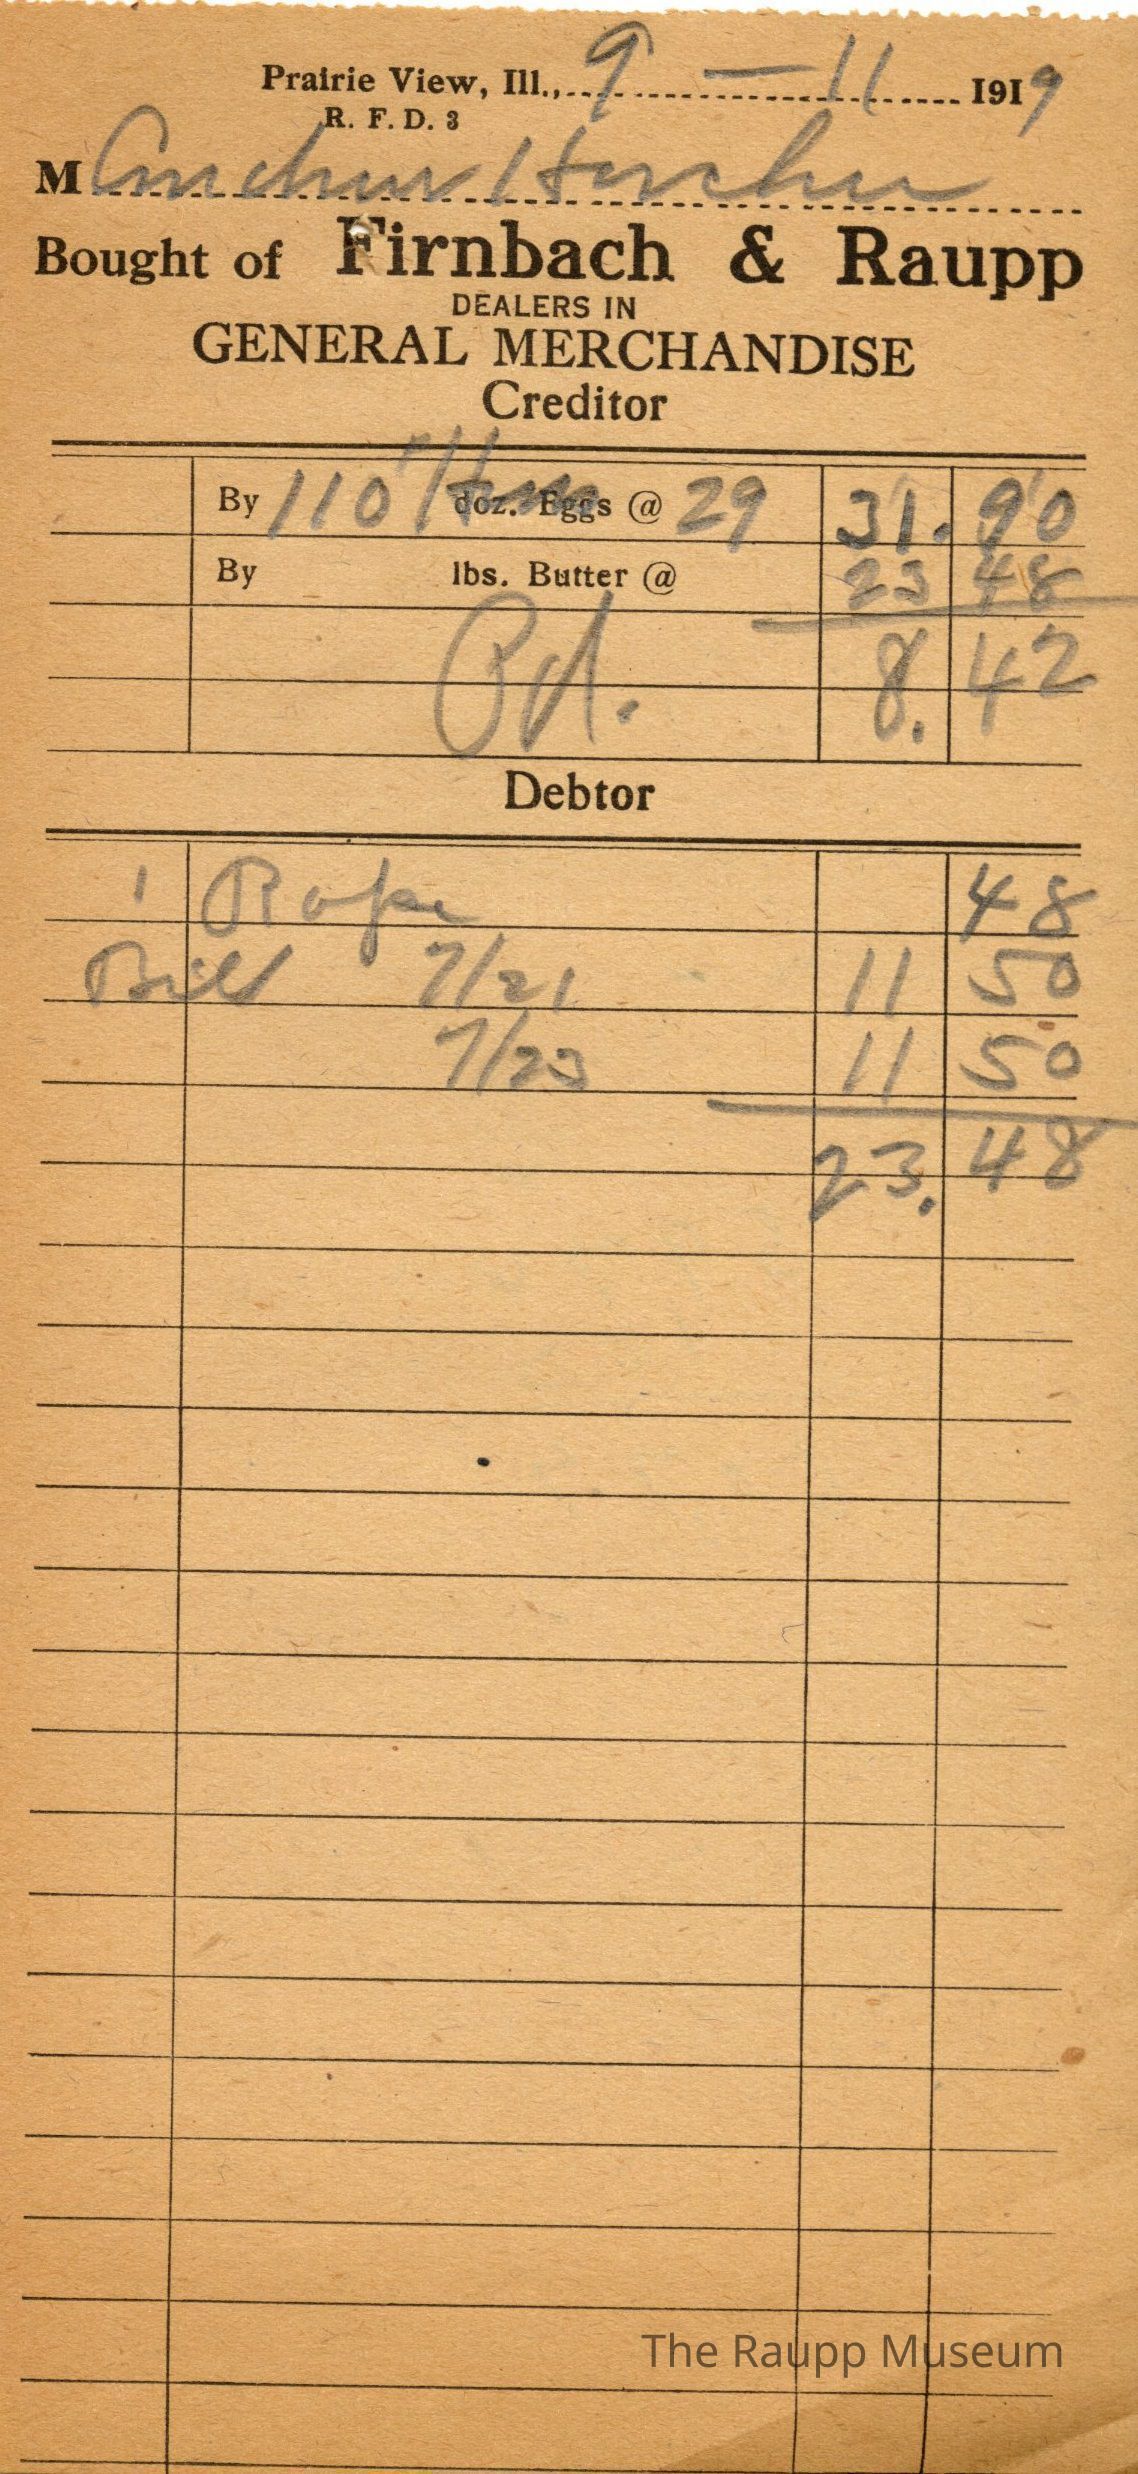 Prairie View, Ill., 9 — 11 1919
R. F. D. 3
M
Bought of Firnbach & Raupp
DEALERS IN
GENERAL MERCHANDISE
Creditor
By 110 # doz. Eggs @ 29 31. 90
By lbs. Butter @ 23 48
Pd. 8. 42
Debtor
1 Rope 48
Bill 7/21 11 50
7/23 11 50
23. 48
The Raupp Museum